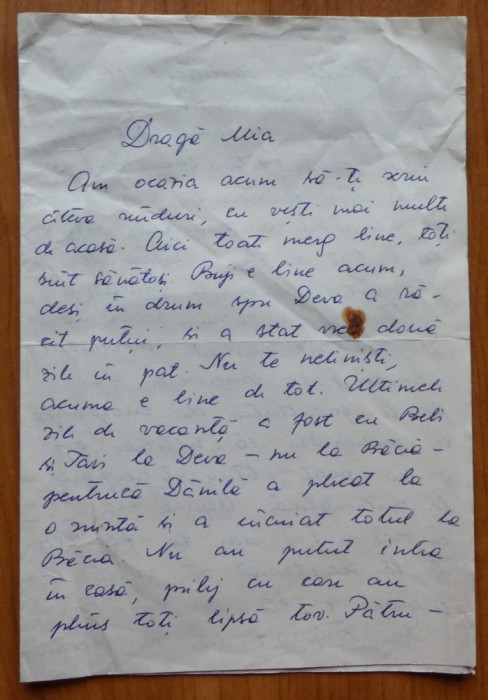 Dragă Mia
Am ocazia acum să-ți scriu
câteva rînduri, cu vești mai multe
de acasă. Aici toate merg bine, toți
sînt sănătoși. Buji e bine acum,
deși în drum spre Deva a ră-
cit puțin, și a stat vreo două
zile în pat. Nu te neliniști,
acuma e bine de tot. Ultimele
zile de vacanță a fost cu Beli
și Tavi la Deva – nu la Băcia –
pentrucă Dănilă a plecat la
o nuntă și a încuiat totul la
Băcia. Nu au putut intra
în casă, prilej cu care au
plîns toți lipsa tov. Pătru –